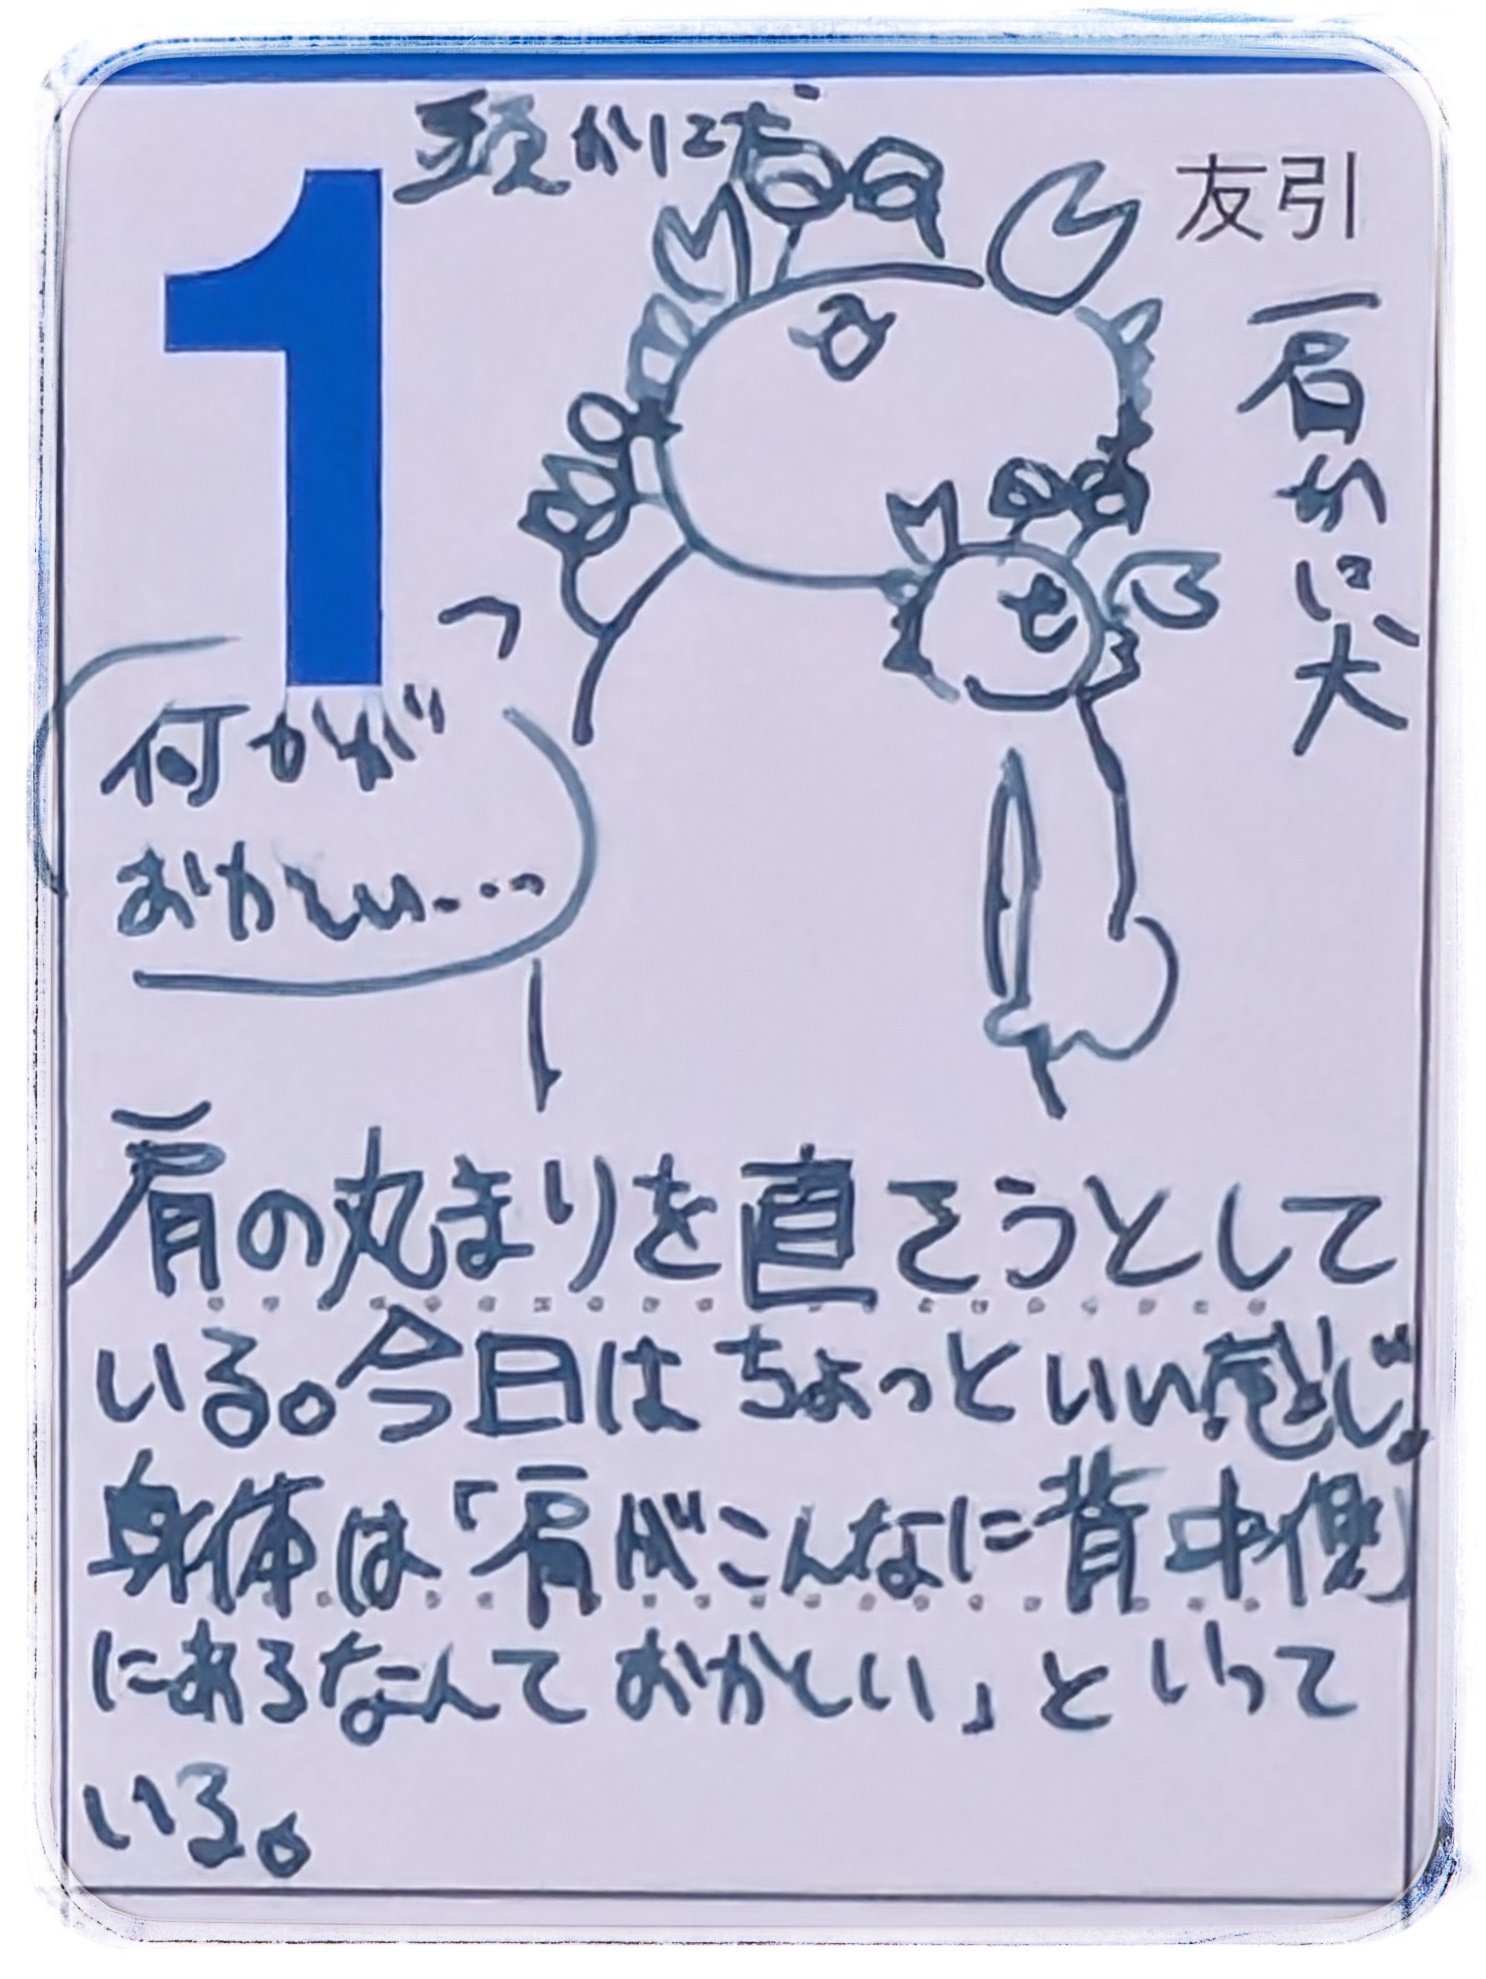 頭かに犬
1
友引
肩かに犬
何かが
おかしい・・・
肩の丸まりを直そうとして
いる。今日はちょっといい感じ。
身体は「肩がこんなに背中側
にあるなんておかしい」といって
いる。